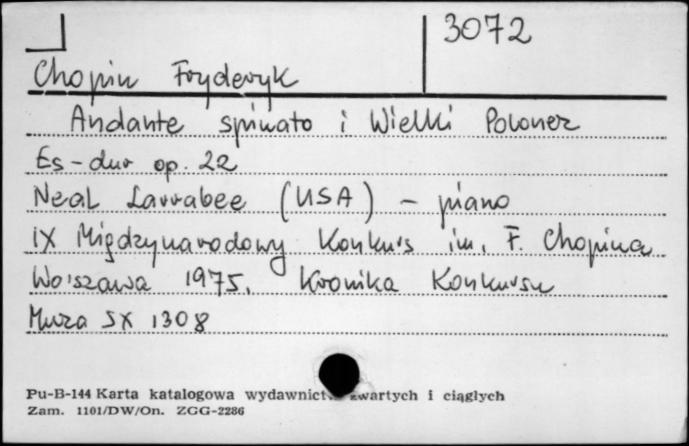 3072
Chopin Fryderyk
Andante spinato i Wielki Polonez
Es-dur op. 22
Neal Larrabee (USA) - piano
IX Międzynarodowy Konkurs im. F. Chopina
Warszawa 1975. Kronika Konkursu
Muza SX 1308
Pu-B-144 Karta katalogowa wydawnictw zwartych i ciągłych
Zam. 1101/DW/On. ZGG-2286